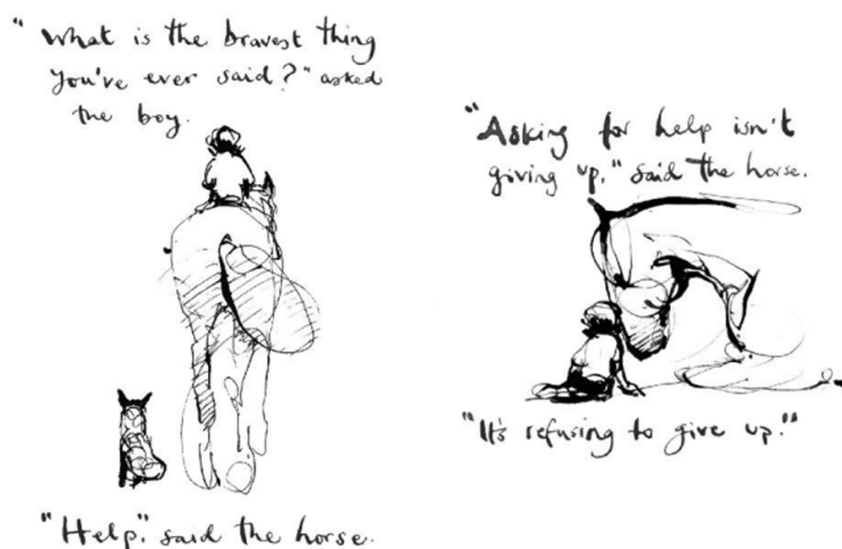 "What is the bravest thing
you've ever said?" asked
the boy.
"Help," said the horse.
"Asking for help isn't
giving up," said the horse.
"It's refusing to give up."